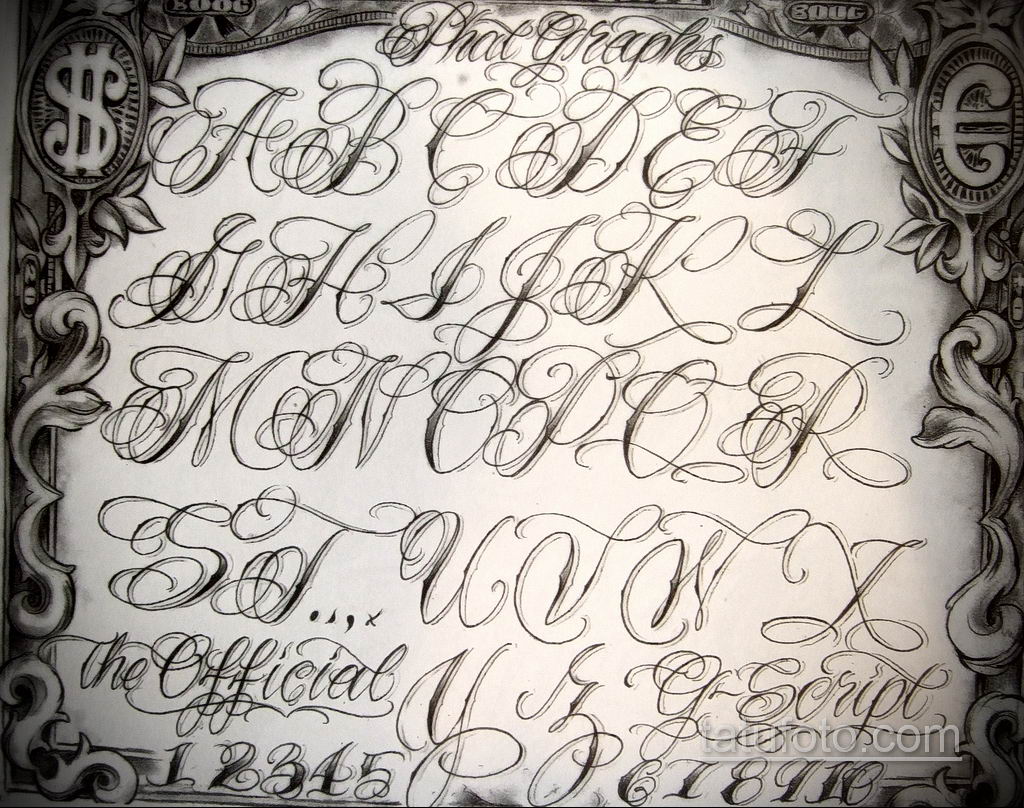 BOOG BOOG
Phat Graphs
$ €
A B C D E F
G H I J K L
M N O P Q R
S T . . , x U V W X
the Official Y Z G-Script
tatufoto.com
1 2 3 4 5 6 7 8 9 10